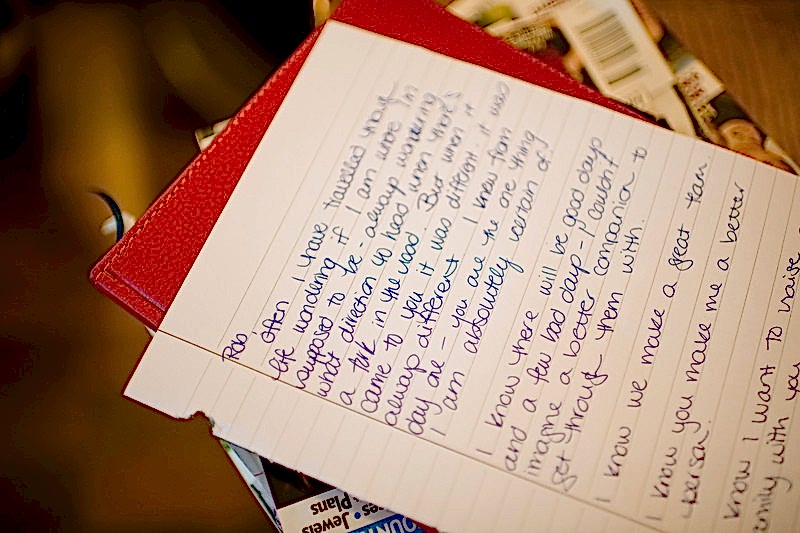 Rob,
Often I have travelled through
life wondering if I am were I'm
supposed to be - always wondering
what direction to head when there's
a fork in the road. But when it
came to you it was different. It was
always different. I knew from
day one - you are the one thing
I am absolutely certain of.
I know there will be good days
and a few bad days - I couldn't
imagine a better companion to
get through them with.
I know we make a great team.
I know you make me a better
person.
know I want to raise a
family with you
Jewels
& Plans